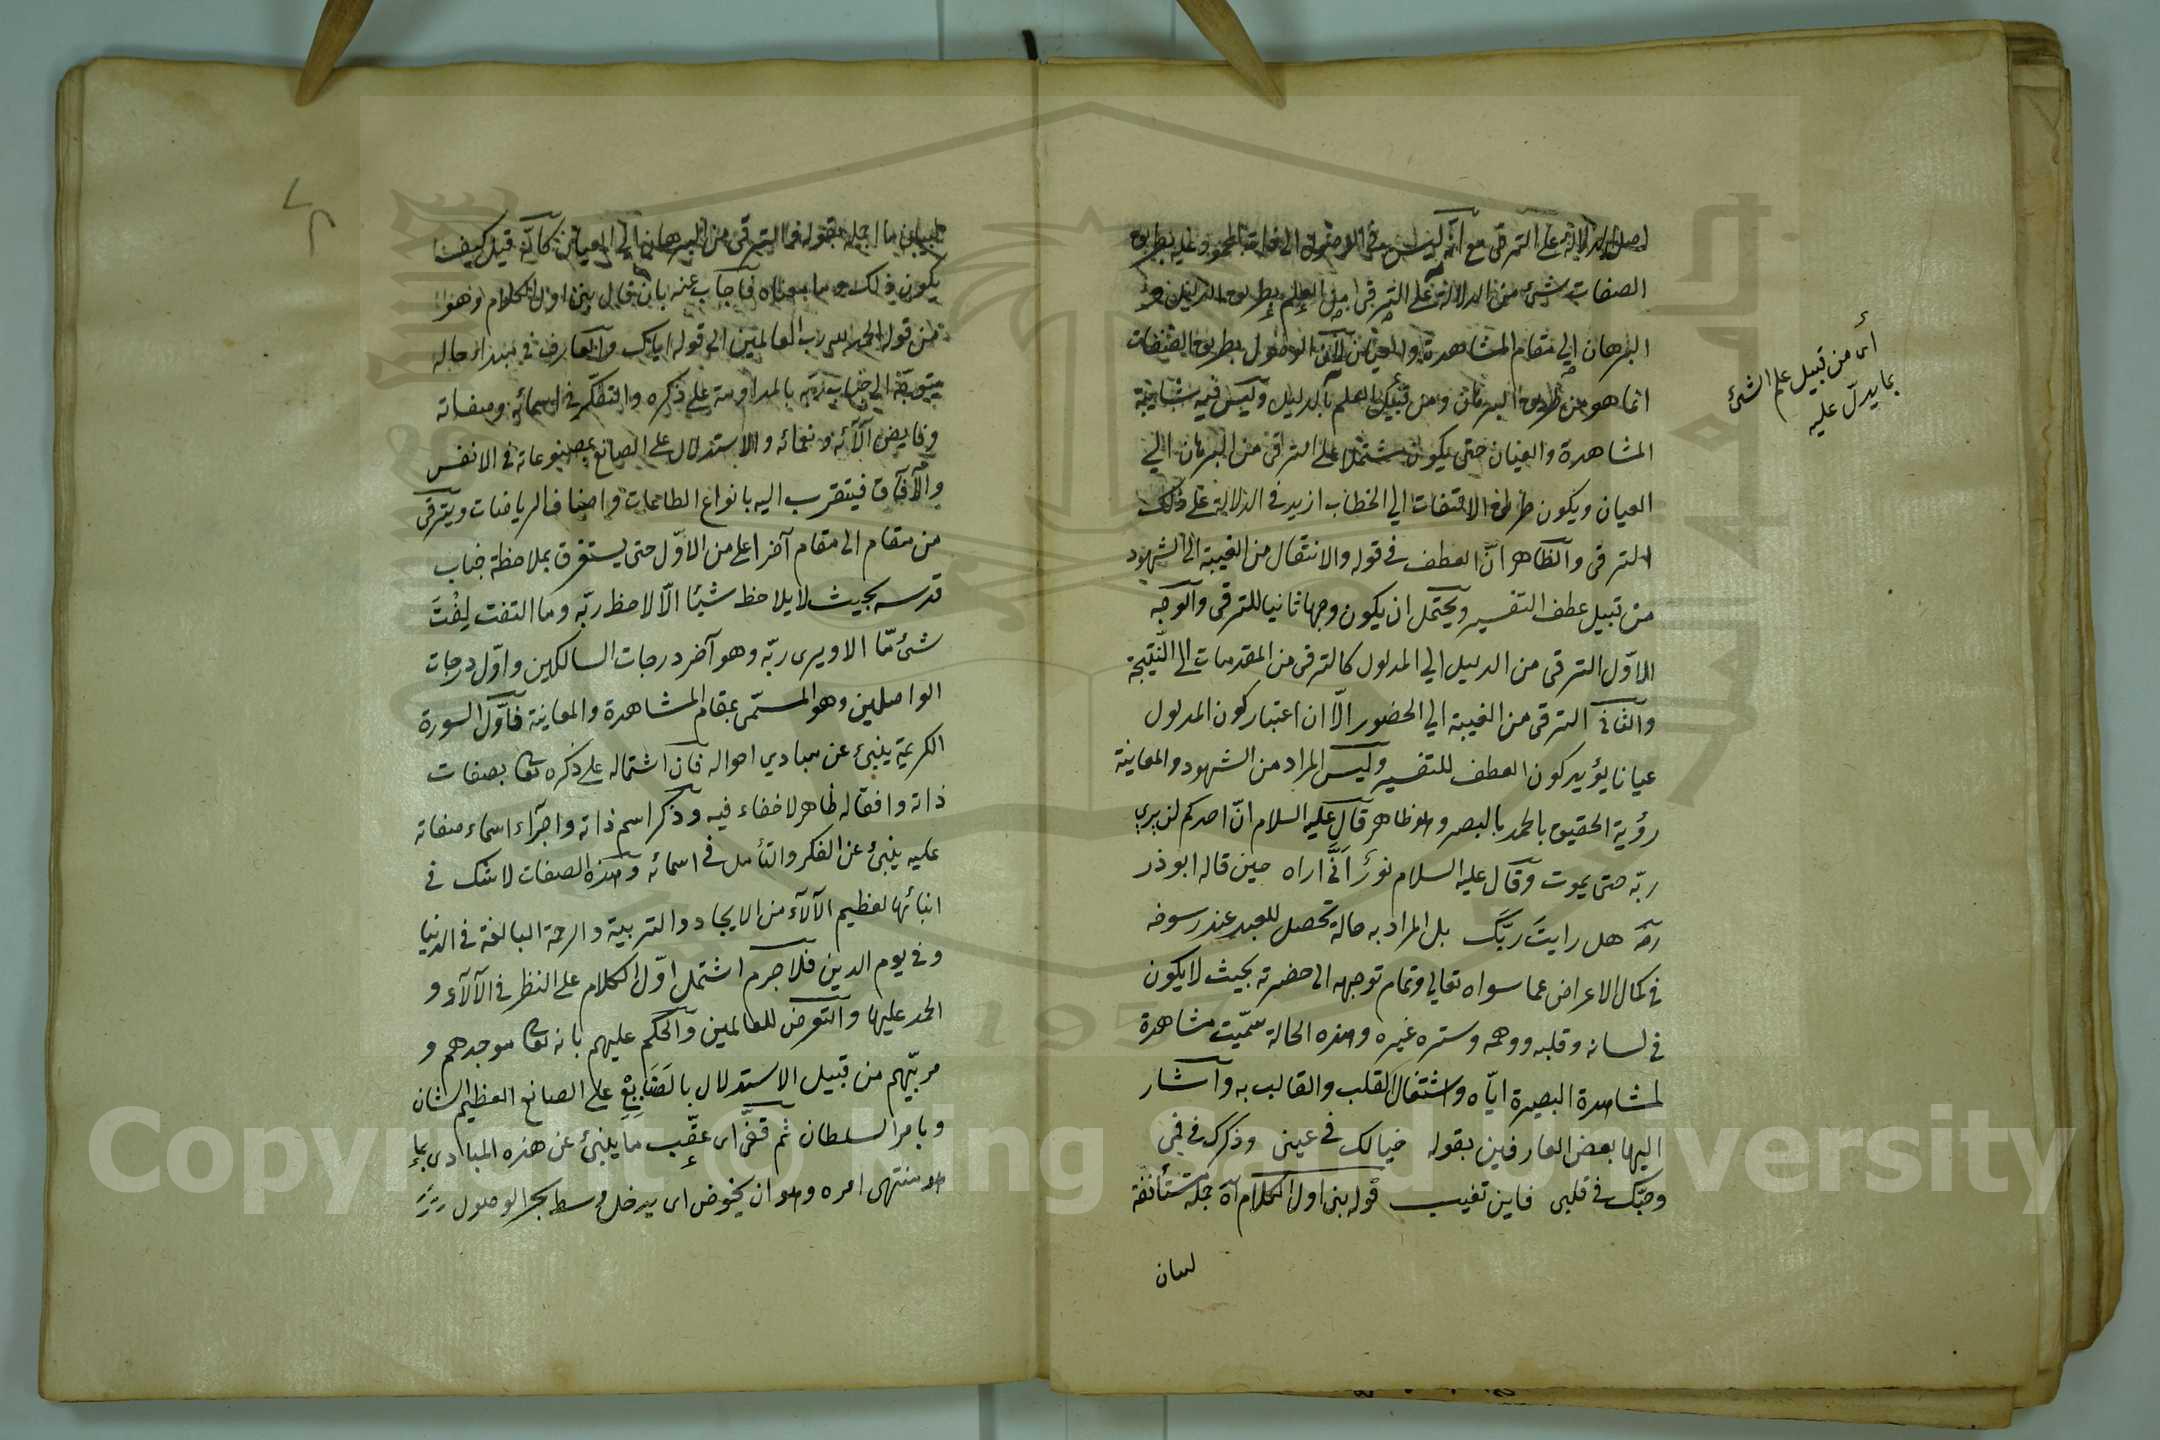 لاصل الدلالة على الترقي مع انه ليس في الوصول الى
الصفات شيئ من الدلالة على الترقي من العلم بطريق الدليل و
البرهان الي مقام المشاهدة والعيان لان الوصول بطريق الصفات
انما هو من طريق البرهان ومن قبيل العلم بالدليل وليس فيه شايبة
المشاهدة والعيان حتى يكون مشتملا على الترقي من البرهان الي
العيان ويكون طريق الالتفات الي الخطاب ازيد في الدلالة على ذلك
الترقي والظاهر انّ العطف في قوله والانتقال من الغيبة الى الشهود
من قبيل عطف التفسير ويحتمل ان يكون وجها ثانيا للترقي والوجه
الاوّل الترقي من الدليل الي المدلول كالترقي من المقدمات الى النتيجة
والثاني الترقي من الغيبة الي الحضور الّا ان اعتبار كون المدلول
عيانا يؤيد كون العطف للتفسير وليس المراد من الشهود والمعاينة
رؤية الحقيق بالحمد بالبصر وهو ظاهر قال عليه السلام انّ احدكم لن يري
ربّه حتى يموت وقال عليه السلام نورٌ اَنَّى اراه حين قاله ابو ذر
رضه هل رايتَ ربَّكَ بل المراد به حالة تحصل للعبد عند رسوخه
في كمال الاعراض عما سواه تعالي وتمام توجهه الى حضرته بحيث لا يكون
في لسانه وقلبه ووهمه وسرّه غيره وهذه الحالة سمّيت مشاهدة
لمشاهدة البصيرة ايّاه واشتغال القلب والقالب به واشار
اليها بعض العارفين بقوله خيالك في عيني وذكرك في فمي
وحبّك في قلبي فاين تغيب قوله بنى اول الكلام آه جملة مستأنفة
لبيان
أي من قبيل علم الشئ
بما يدلّ عليه
لبيان ما اجمله بقوله والترقي من البرهان الي العيان كانّه قيل كيف
يكون ذلك وما معناه فاجاب عنه بان قال بنى اول الكلام وهو
من قوله الحمد لله رب العالمين الي قوله اياك والعارف في مبدا حاله
يتوجه الي جناب ربّه بالمداومة على ذكره والتفكّر في اسمائه وصفاته
وفايض آلائه ونعمائه والاستدلال على الصانع بمصنوعاته في الانفس
والآفاق فيتقرب اليه بانواع الطاعات واصناف الرياضات ويترقى
من مقام الى مقام آخر اعلى من الاوّل حتى يستغرق بملاحظة جناب
قدسه بحيث لا يلاحظ شيئا الّا لاحظ ربّه وما التفت لِفْتَ
شئ مّا الا ويرى ربّه وهو آخر درجات السالكين واوّل درجات
الواصلين وهو المسمّى بمقام المشاهدة والمعاينة فاوّل السورة
الكريمة ينبئ عن مبادي احواله فان اشتماله على ذكره تعا بصفات
ذاته وافعاله ظاهر لا خفاء فيه وذكر اسم ذاته واجراء اسماء صفاته
عليه ينبئ عن الفكر والتأمل في اسمائه وهذه الصفات لا شك في
انبائها لعظيم الآلآء من الايجاد والتربية والرحمة البالغة في الدنيا
وفي يوم الدين فلا جرم اشتمل اوّل الكلام على النظر في الآلآء و
الحمد عليها والتعرض للعالمين والحكم عليهم بانه تعا موجدهم و
مربّيهم من قبيل الاستدلال بالصَنَايِعِ على الصانع العظيم الشان
وباهر السلطان ثم قفّى اى عقّب ما ينبئ عن هذه المبادى بما
هو منتهى امره وهو ان يخوض اى يدخل وسط بحر الوصول
Copyright © King Saud University
1957